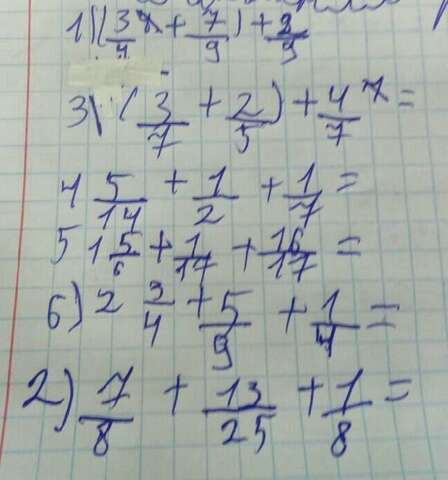 1) (3/4 + 7/9) + 2/9
3) (3/7 + 2/5) + 4/7 =
4 5/14 + 1/2 + 1/7 =
5 1 5/6 + 1/17 + 16/17 =
6) 2 3/4 + 5/9 + 1/4 =
2) 7/8 + 13/25 + 1/8 =